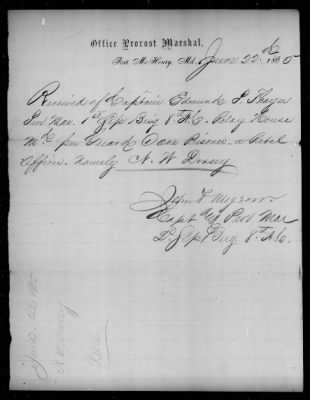 Office Provost Marshal,
Fort McHenry, Md. June 22d 1865
Received of Captain Edmund L. Thayer
Prov Mar. 1st Sep Brig 8th A.C. Relay House
Md per Guard One Prisoner a Rebel
Officer. Namely N. W. Dorsey
John
Capt and Prov Mar
2d Sep Brig 8th A.C.
June 22, 65